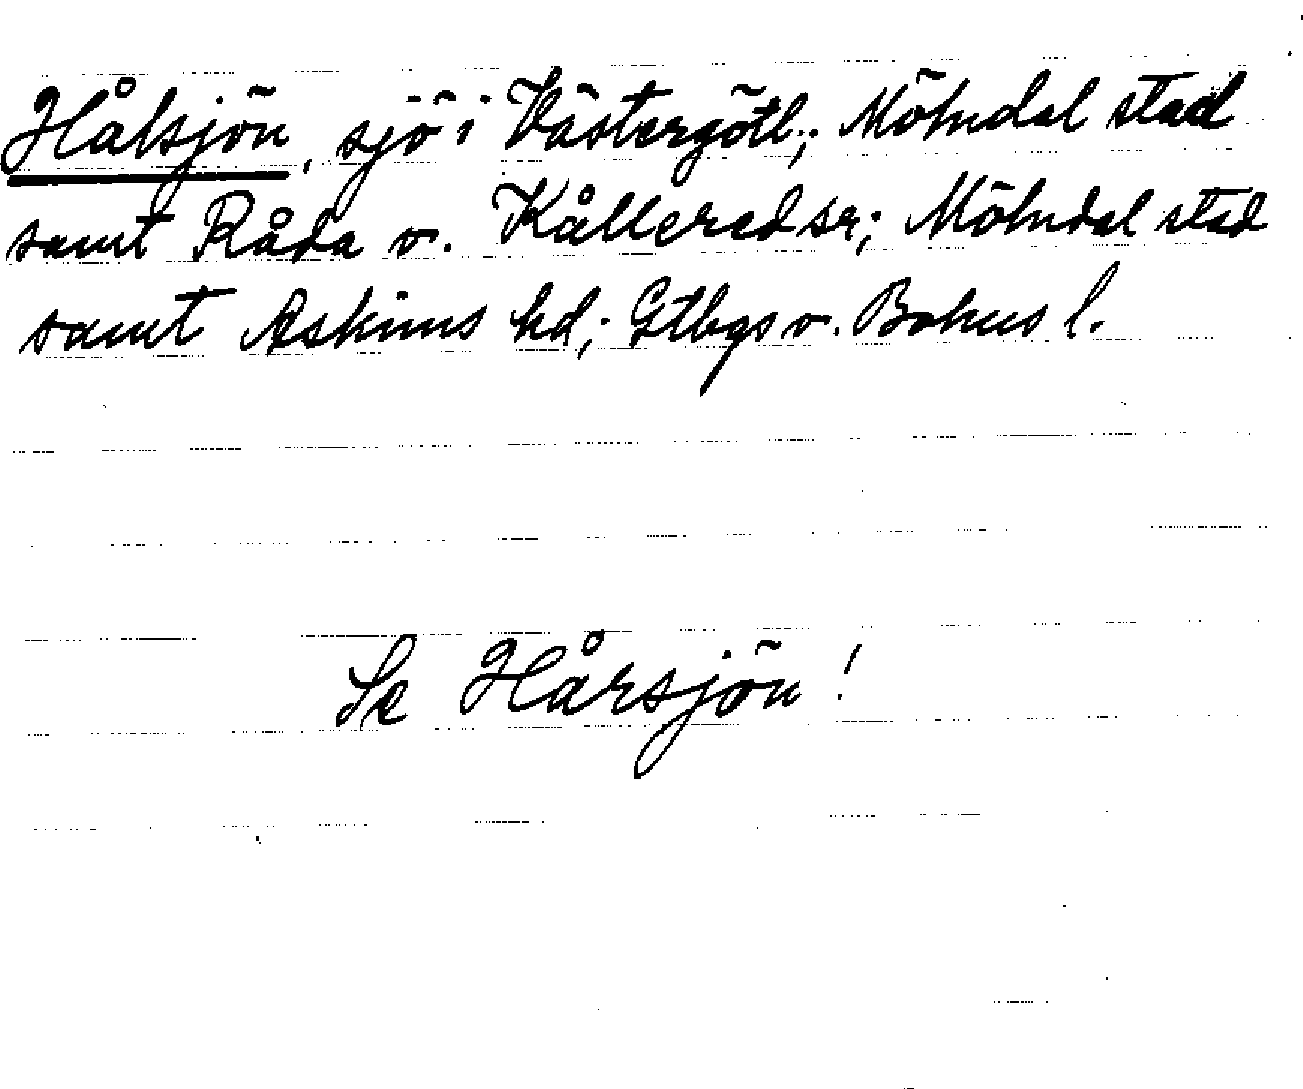 Hålsjön, sjö i Västergötl.; Mölndal stad
samt Råda o. Kållered sr; Mölndal stad
samt Askims hd; Gtbgs o. Bohus l.
Se Hårsjön!